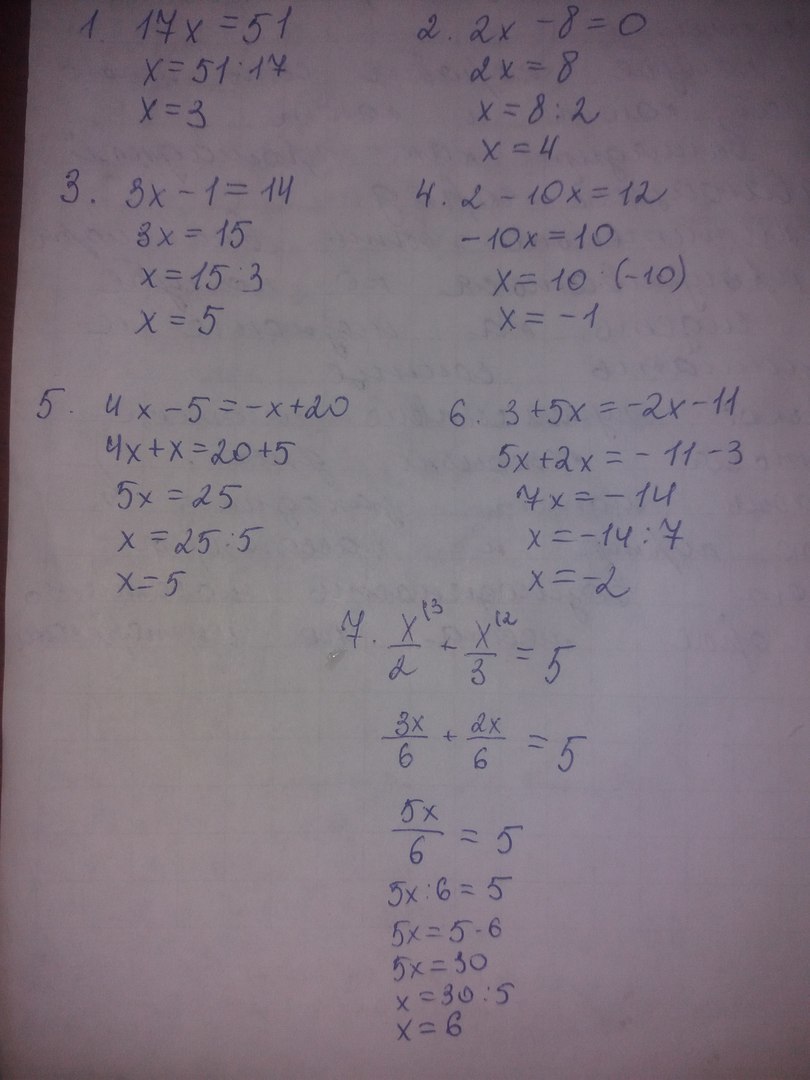 1. 17x = 51
x = 51 : 17
x = 3
2. 2x - 8 = 0
2x = 8
x = 8 : 2
x = 4
3. 3x - 1 = 14
3x = 15
x = 15 : 3
x = 5
4. 2 - 10x = 12
-10x = 10
x = 10 : (-10)
x = -1
5. 4x - 5 = -x + 20
4x + x = 20 + 5
5x = 25
x = 25 : 5
x = 5
6. 3 + 5x = -2x - 11
5x + 2x = -11 - 3
7x = -14
x = -14 : 7
x = -2
7. x^(3/2 + x^(2/3 = 5
3x/6 + 2x/6 = 5
5x/6 = 5
5x : 6 = 5
5x = 5 · 6
5x = 30
x = 30 : 5
x = 6